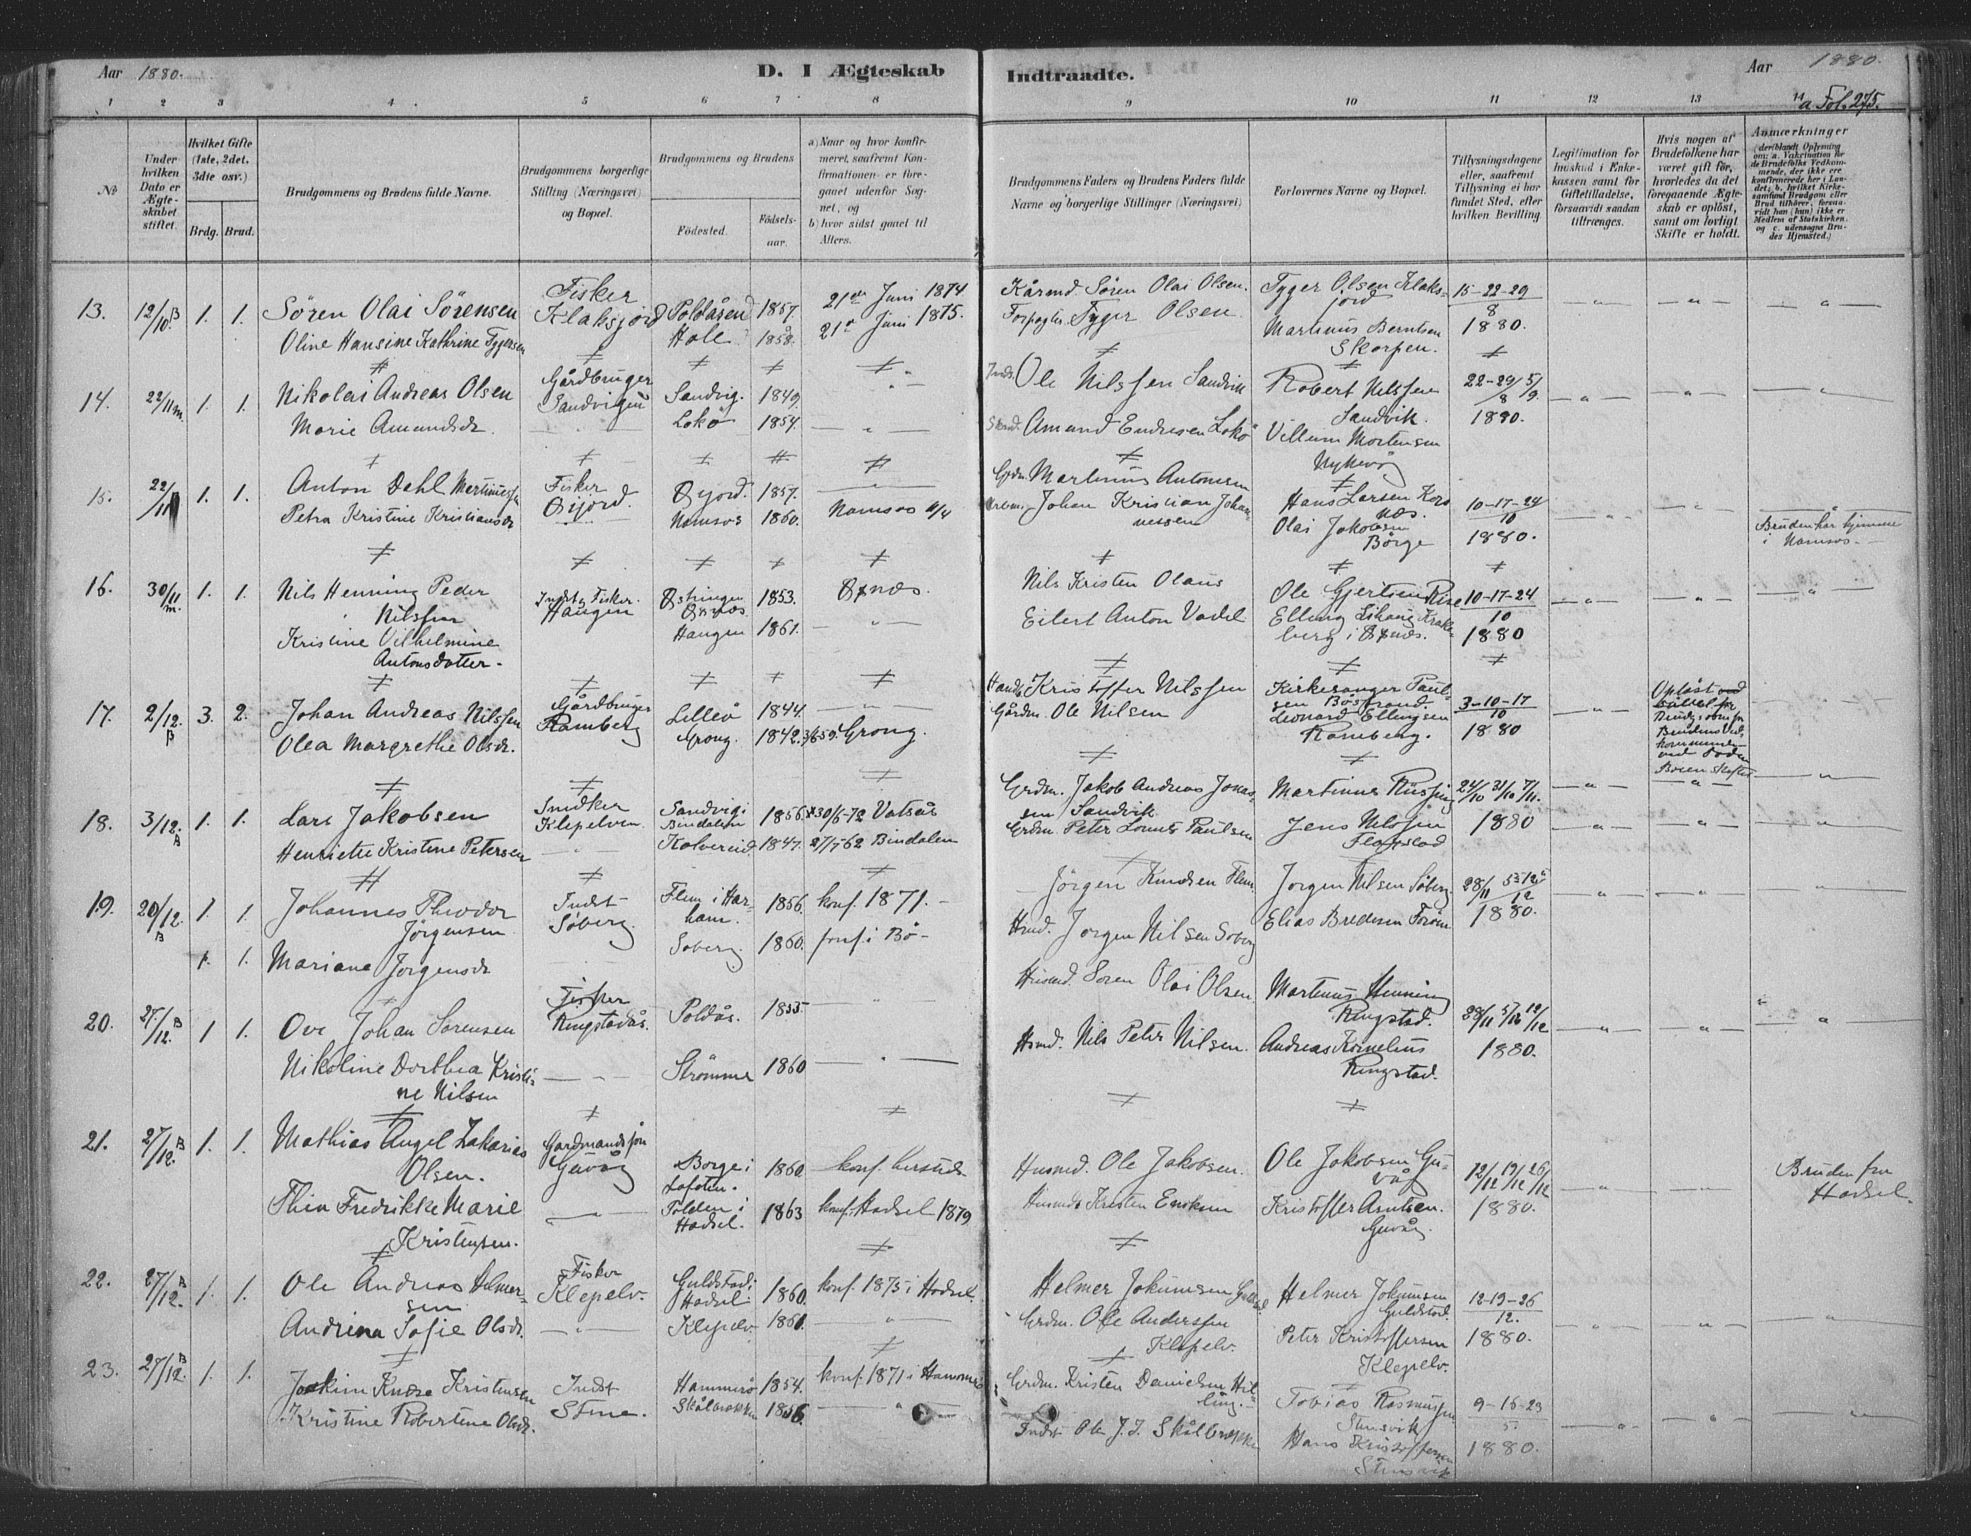 Aar 1880.
D. I Ægteskab
Indtraadte.
Aar 1880.
1 2 3 4 5 6 7 8 9 10 11 12 13 14
a Fol. 275.
No
Under hvilken Dato er Ægteskabet stiftet.
Hvilket Gifte (1ste, 2det, 3dte osv.)
Brdg. Brud.
Brudgommens og Brudens fulde Navne.
Brudgommens borgerlige Stilling (Næringsvei) og Bopæl.
Brudgommens og Brudens
Fødested.
Fødselsaar.
a) Naar og hvor konfirmeret, saafremt Konfirmationen er foregaaet udenfor Sognet, og
b) hvor sidst gaaet til Alters.
Brudgommens Faders og Brudens Faders fulde Navne og borgerlige Stillinger (Næringsvei)
Forlovernes Navne og Bopæl.
Tillysningsdagene eller, saafremt Tillysning ei har fundet Sted, efter hvilken Bevilling.
Legitimation for Indskud i Enkekassen samt for Giftetilladelse, forsaavidt saadan tiltrænges.
Hvis nogen af Brudefolkene har været gift før, hvorledes da det foregaaende Ægteskab er opløst, samt om lovligt Skifte er holdt.
Anmærkninger
(deriblandt Oplysning om: a. Vakcination for de Brudefolks Vedkommende, der ikke ere konfirmerede her i Landet; b. hvilket Kirkesamfund Brudgom eller Brud tilhører, forsaavidt han (hun) ikke er Medlem af Statskirken, og c. udensogns Brudes Hjemsted.)
13. 12/10 B 1. 1. Søren Olai Sørensen Fisker Klaksjord Poldåsen 1857. 21de Juni 1874 Søren Olai Olsen. Tyger Olsen Klaksjord 15-22-29
8
Oline Hansine Kathrine Tygersen Holle 1858. 21de Juni 1875. Tyger Olsen Martinus Berntsen Skorpen. 1880.
14. 22/11 m. 1. 1. Nikolai Andreas Olsen Gårdbruger Sandvigen Sandvig. 1849. Ole Nilssen Sandvik Robert Nilssen Sandvik. 22-29/8 5/9.
Marie Amundsdr. Lokø 1854. Amund Endresen Lokø Villum Mortensen Nykvåg 1880.
15. 22/11 1. 1. Anton Dahl Martinussen Fisker Øijord. Øijord. 1857. Grdm. Martinus Antonsen Hans Larsen 10-17-24
10
Petra Kristine Kristiansdr Namsos 1860. Namsos Johan Kristian Johannessen Olai Jakobsen Børge 1880. Bruden har hjemme i Namsos.
16. 30/11 m. 1. 1. Nils Henning Peder Nilssen Indst. Fisker. Haugen Øxnæs 1853. Øxnæs. Nils Kristen Olaus Ole Gjertsen Rise 10-17-24
10
Kristine Vilhelmine Antonsdatter. Haugen 1861. Eilert Anton Vadel Elling i Øxnæs. 1880
17. 2/12. B 3. 2. Johan Andreas Nilssen Gårdbruger Ramberg Lilleø 1844. Kristoffer Nilssen Kirkesanger Paulsen Bøstrand. 3-10-17
10
Olea Margrethe Olsdr. Grong. 1842. Grong. Gårdm. Ole Nilsen Leonard Ellingsen Ramberg. 1880
18. 3/12. B 1. 1. Lars Jakobsen Snedker Klepelven Sandvig i Bindalen 1856. 30/6-72 Vatsås Grdm. Jakob Andreas Jonassen Sandvik Martinus 24/10 31/10 7/11.
Henriette Kristine Petersen Kolvereid 1847. 27/7 62 Bindalen Grdm. Peter Paulsen Jens Nilsen Flagstad 1880
19. 20/12. B 1. 1. Johannes Theodor Jørgensen Indst Søberg. Flem i Harham. 1856. konf. 1871. Jörgen Knudsen Flem. Jørgen Nilsen Søberg
1. 1. Mariane Jørgensdr Søberg 1860. konf. i Bø Hmd. Jørgen Nilsen Søberg Elias Bredesen 1880.
20. 27/12. B 1 1. Ove Johan Sørensen Fisker Ringstadås. Poldås. 1855. Husmd. Søren Olai Olsen Martinus Henning Ringstad. 28/11 5/12 12/12
Nikoline Dorthea Kristine Nilsen Strømme 1860 Hsmd. Nils Peter Nilsen. Andreas Kornelius Ringstad. 1880.
21. 27/12. B 1. 1. Mathias Angel Zakarias Olsen. Gårdmandssøn Guvåg Borge i Lofoten. 1860 konf. hersteds Husmd. Ole Jakobsen. Ole Jakobsen Guvåg 12/12 19/12 26/12 Bruden fra Hadsel.
Thea Fredrikke Marie Kristensen. Tolden i Hadsel. 1863 konf. Hadsel 1879 Kristen Kristoffer Arntsen. Guvåg. 1880.
22. 27/12. B 1. 1. Ole Andreas Helmersen Fisker Klepelv. Guldstad i Hadsel 1860. konf. 1875 i Hadsel. Helmer Jokumsen Helmer Jokumsen Guldstad. 12-19-26
12.
Andrina Sofie Olsdr. Klepelv. 1861. Grdm. Ole Anderssen Klepelv. Peter Kristoffersen Klepelv. 1880.
23. 27/12. B 1. 1. Joakim Kristensen Indst Stene. Hammerø 1854. konf. 1871 i Hammerø Grdm. Kristen Danielsen Tobias Rasmussen Stensvik 9-16-23
5
Kristine Robertine Olsdr. Skålbrekken 1856. Indst Ole J. J. Skålbrekken Hans Kristoffersen Stensvik 1880.